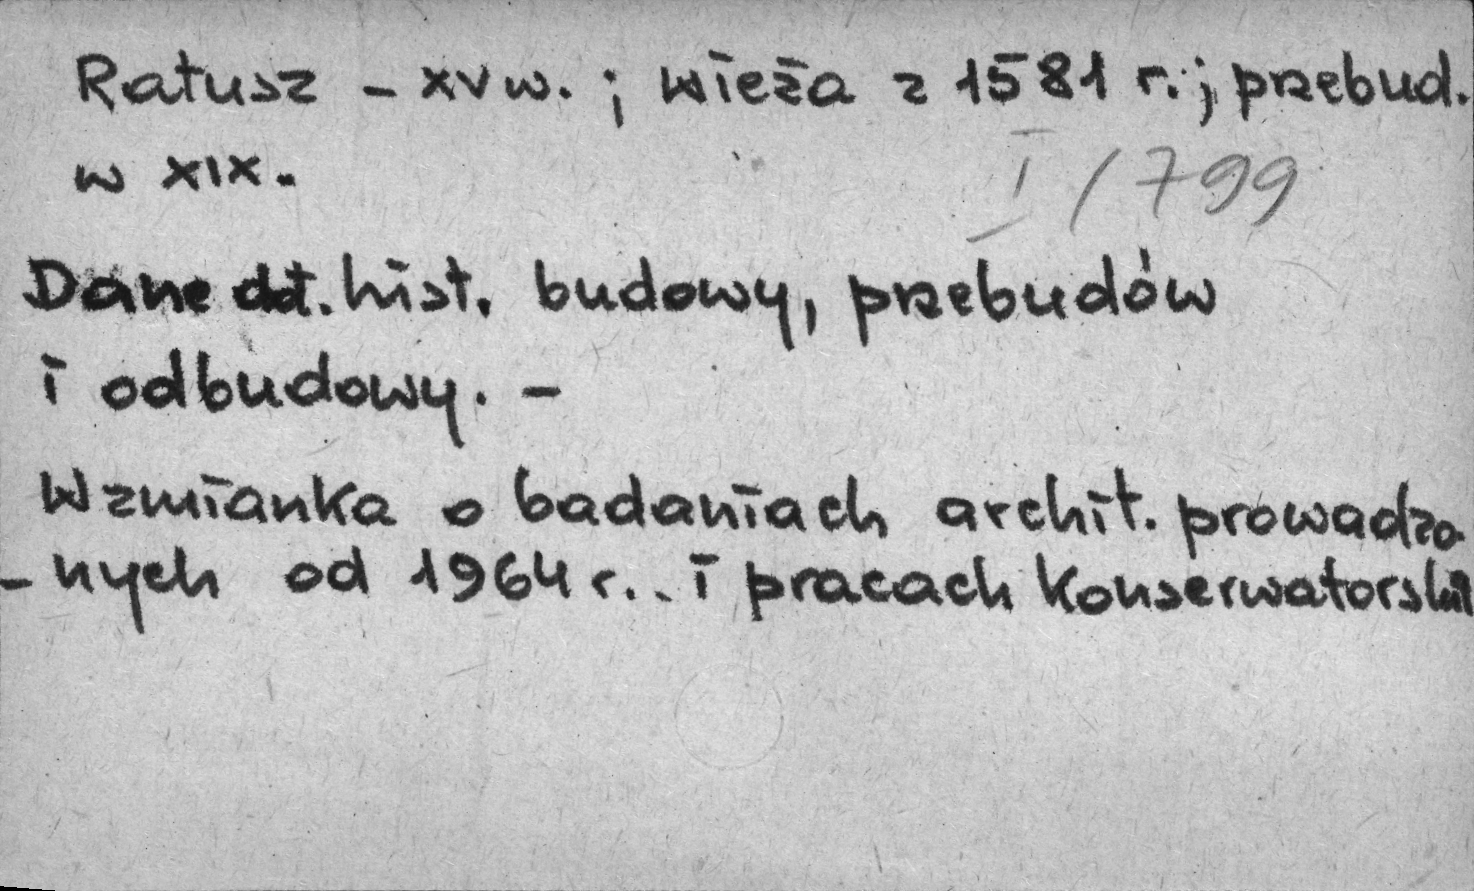 Ratusz - XV w. ; wieża z 1581 r. ; przebud.
w XIX.
I / 799
Dane dot. hist. budowy, przebudów
i odbudowy. -
Wzmianka o badaniach archit. prowadzo
- nych od 1964 r.. i pracach konserwatorskich